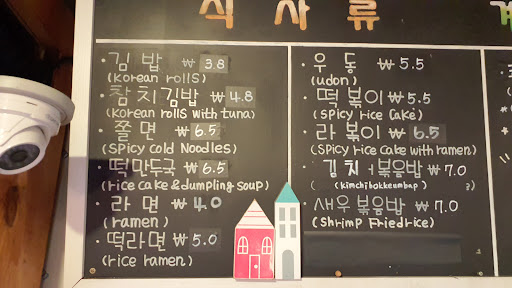 식 사 류
김 밥 ₩ 3.8
(korean rolls)
참치김밥 ₩ 4.8
(korean rolls with tuna)
쫄 면 ₩ 6.5
(Spicy cold Noodles)
떡만두국 ₩ 6.5
(rice cake & dumpling soup)
라 면 ₩ 4.0
(ramen)
떡라면 ₩ 5.0
(rice ramen)
우 동 ₩ 5.5
(udon)
떡 볶이 ₩ 5.5
(Spicy rice cake)
라 볶이 ₩ 6.5
(Spicy rice cake with ramen)
김치 볶음밥 ₩ 7.0
(kimchibokkeumbap)
새우 볶음밥 ₩ 7.0
(Shrimp Friedrice)